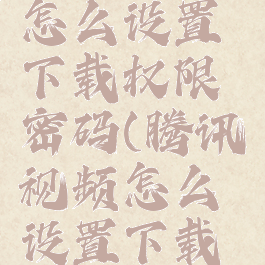 怎么设置
下载权限
密码(腾讯
视频怎么
设置下载